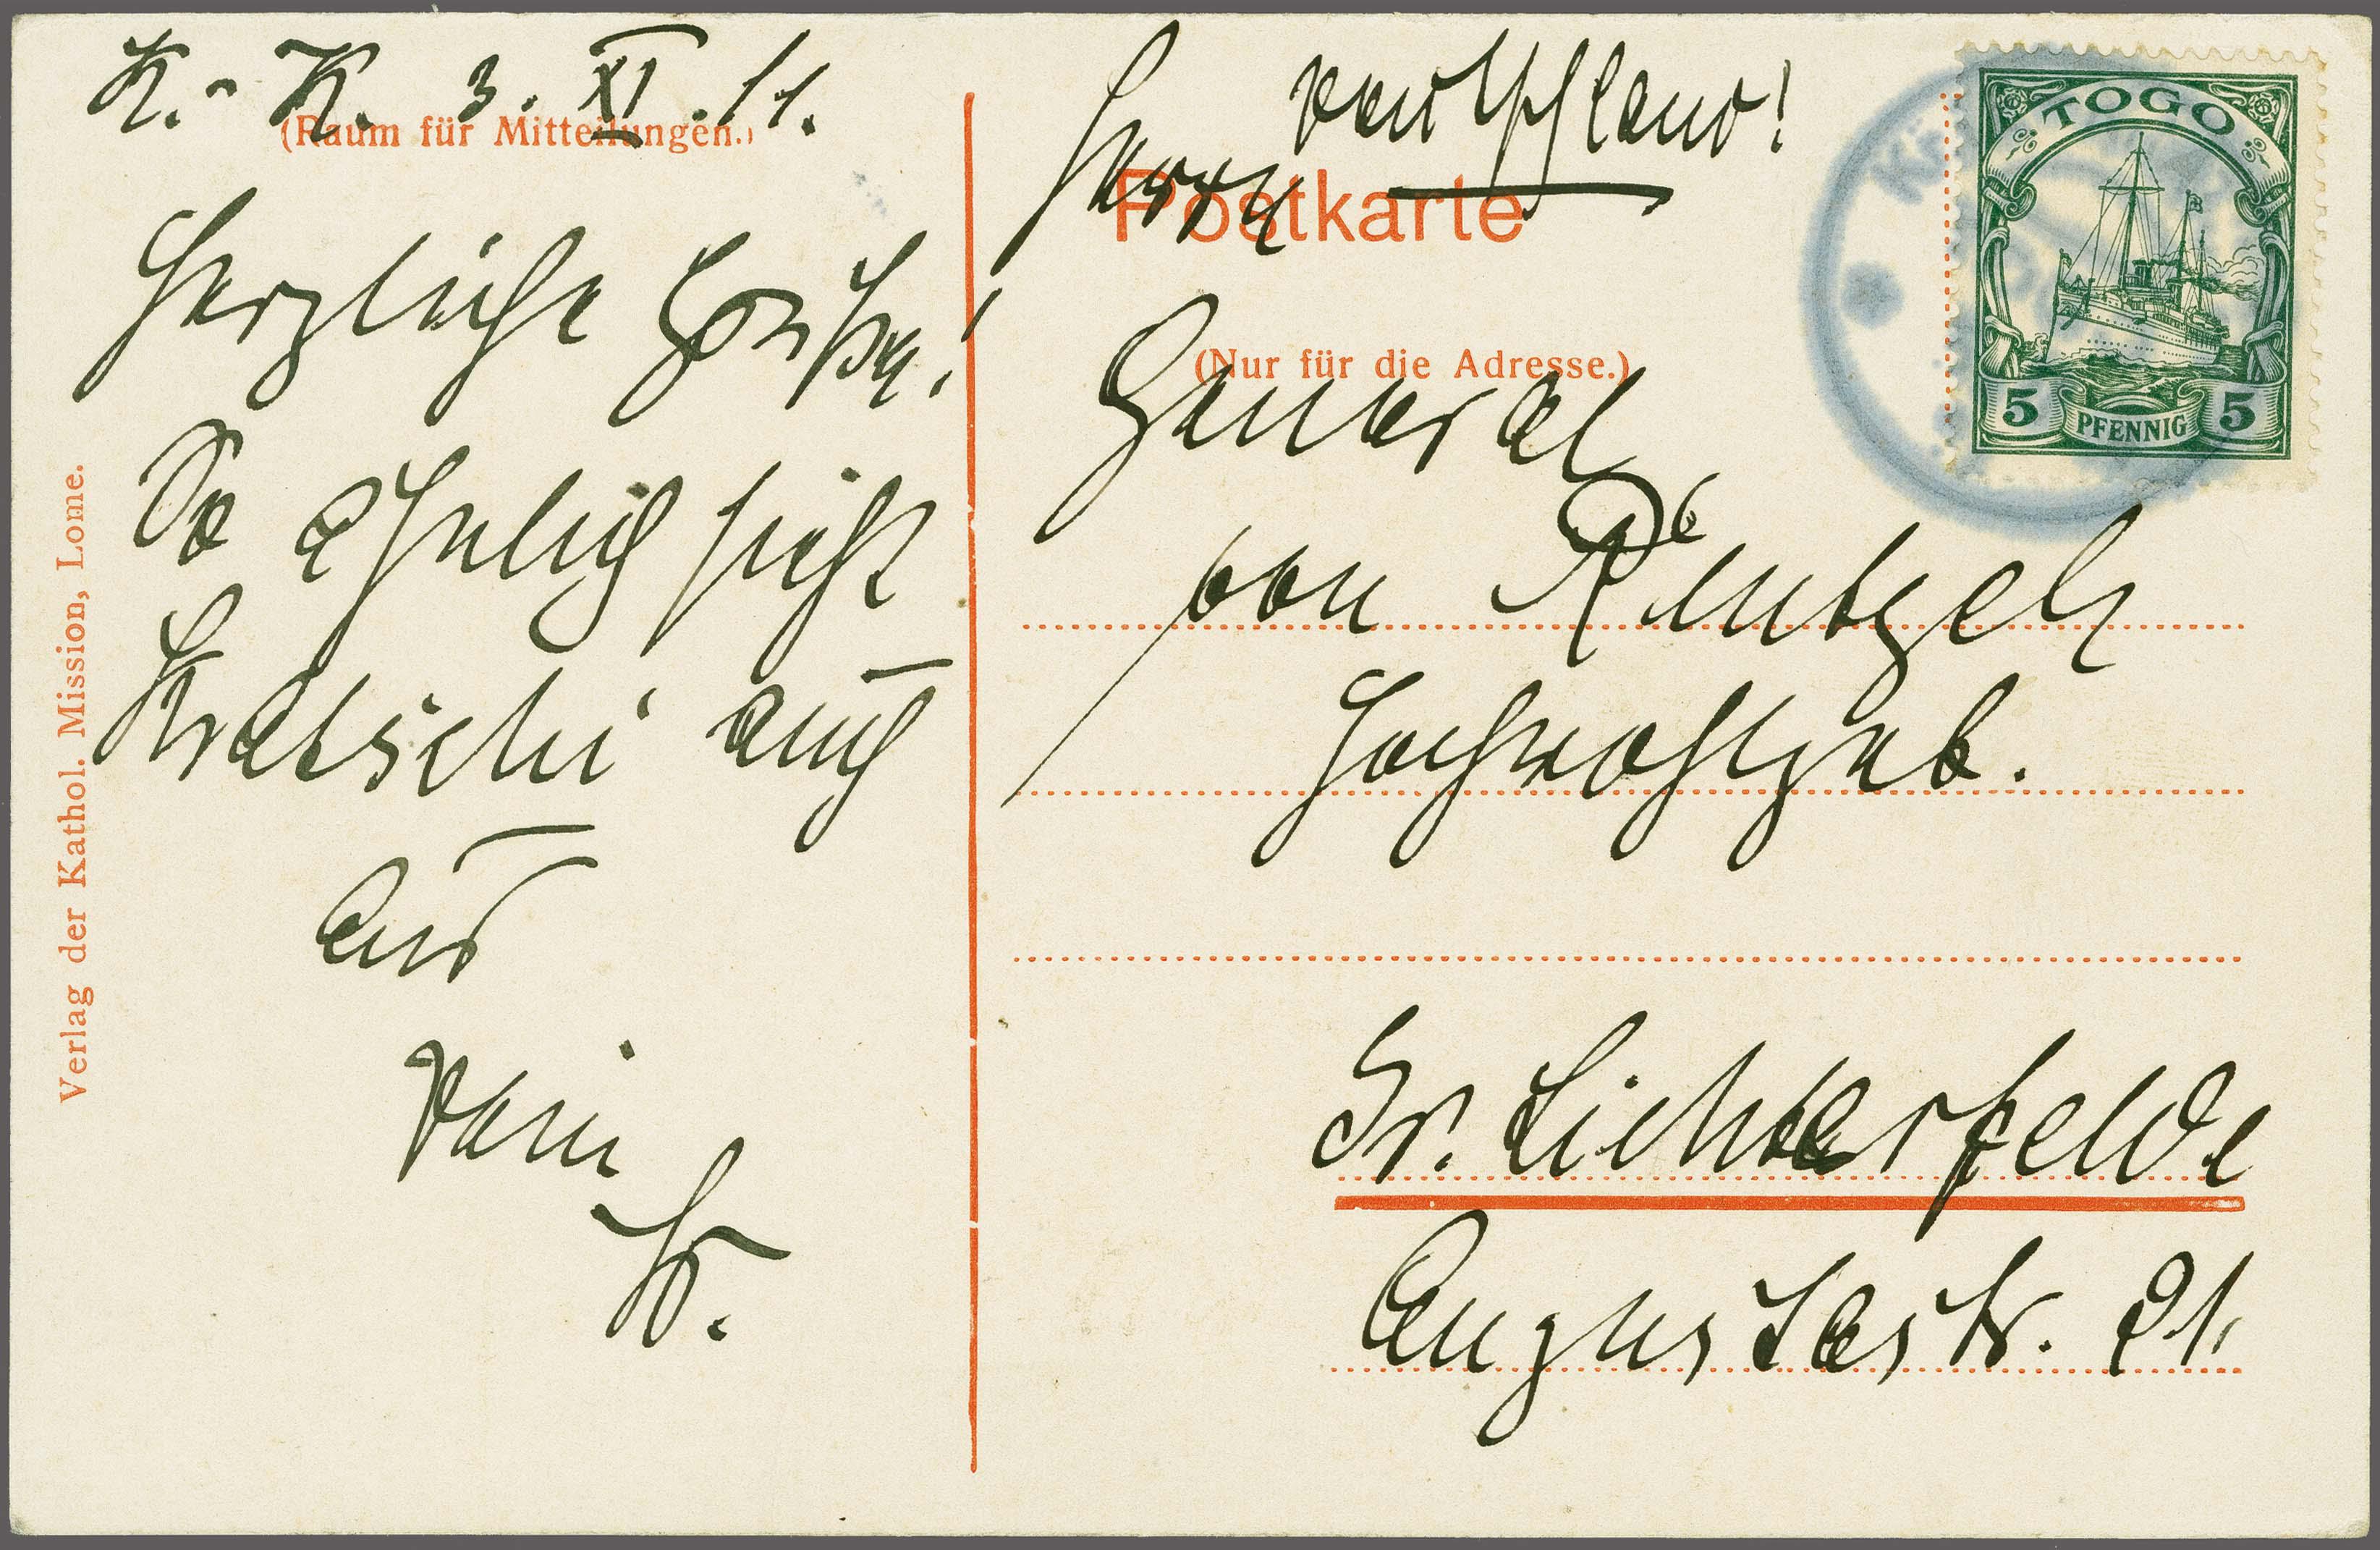 K.-K. 3. XI. 11.
(Raum für Mitteilungen.)
Herzliche Grüße!
So ähnlich sieht
Kratschi auch
aus
Dein
Fr.
Verlag der Kathol. Mission, Lome.
Deutschland!
Herrn
Postkarte
(Nur für die Adresse.)
General
von Rentzell
Hochwohlgeb.
Gr. Lichterfelde
Augustastr. 21.
TOGO
5 PFENNIG 5